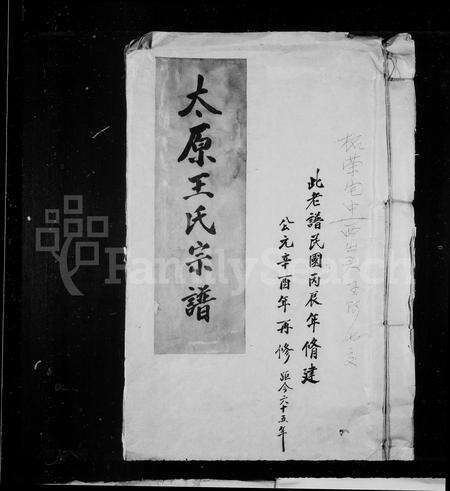 此老譜民國丙辰年脩建
公元辛酉年再修 距今六十五年
太原王氏宗譜
FamilySearch